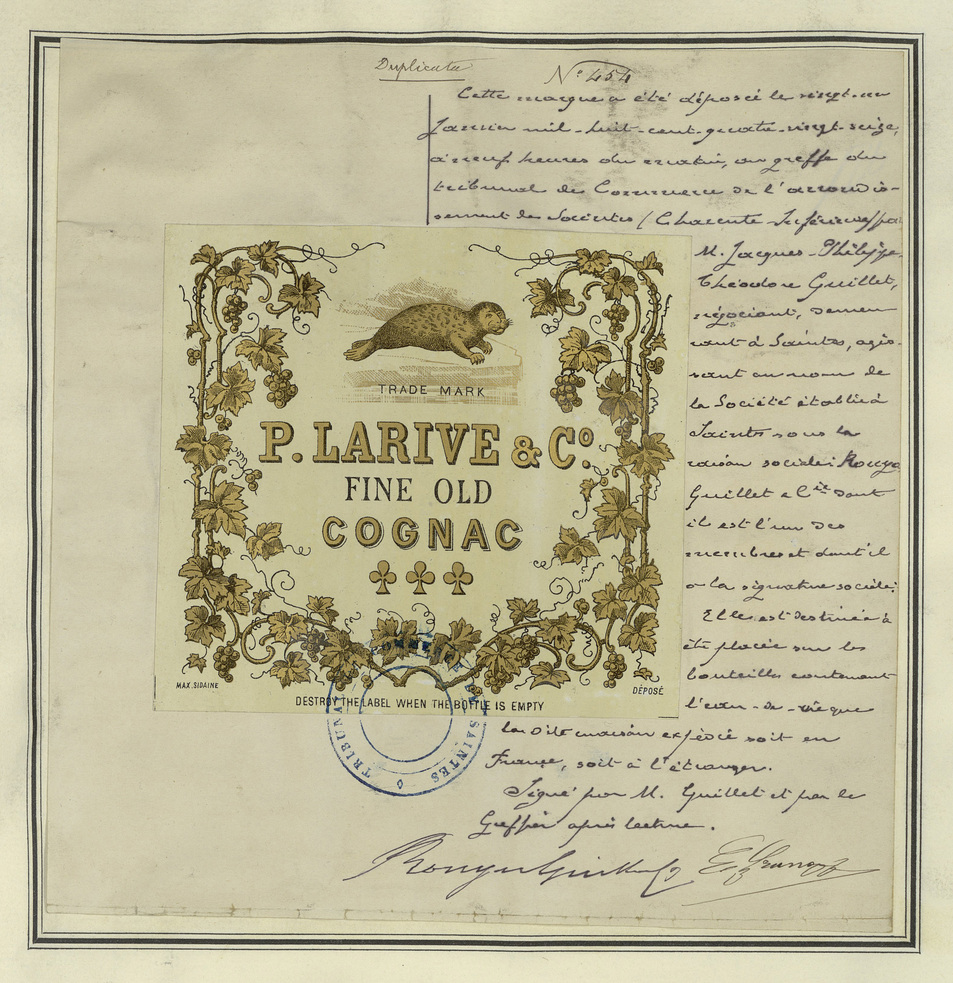 Duplicata
N° 454
Cette marque a été déposée le vingt-un
Janvier mil-huit-cent-quatre-vingt-seize,
à neuf heures du matin, au greffe du
tribunal de Commerce de l'arrondis-
sement de Saintes (Charente-Inférieure) par
M. Jacques-Philippe-
Théodore Guillet,
négociant, demeu
rant à Saintes, agis-
sant au nom de
la Société établie à
Saintes sous la
raison sociale: Rouyer
Guillet & Cie dont
il est l'un des
membres et dont il
a la signature sociale.
Elle est destinée à
être placée sur les
bouteilles contenant
l'eau-de-vie que
la dite maison expédie soit en
France, soit à l'étranger.
Signé par M. Guillet et par le
Greffier après lecture.
Rouyer Guillet & Co
TRADE MARK
P. LARIVE & Co.
FINE OLD
COGNAC
MAX. SIDAINE
DÉPOSÉ
DESTROY THE LABEL WHEN THE BOTTLE IS EMPTY
TRIBUNAL COMMERCE SAINTES